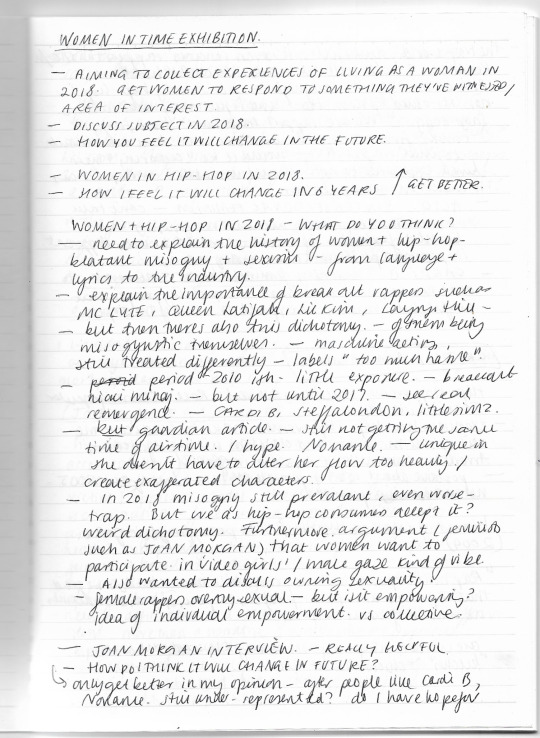 WOMEN IN TIME EXHIBITION.
– AIMING TO COLLECT EXPERIENCES OF LIVING AS A WOMAN IN
2018. GET WOMEN TO RESPOND TO SOMETHING THEY'VE WITNESSED/
AREA OF INTEREST.
– DISCUSS SUBJECT IN 2018.
– HOW YOU FEEL IT WILL CHANGE IN THE FUTURE.
– WOMEN IN HIP-HOP IN 2018.
– HOW I FEEL IT WILL CHANGE IN 6 YEARS ↑ GET BETTER.
WOMEN + HIP-HOP IN 2018 – WHAT DO YOU THINK?
– need to explain the history of women + hip-hop-
blatant misogny + sexism – from language +
lyrics to the industry.
– explain the importance of break out rappers such as
MC LYTE, Queen Latifah, Lil Kim, Lauryn Hill –
– but then theres also this dichotomy. – of them being
misogynistic themselves. – masculine acting,
still treated differently – labels "too much hassle".
– period – 2010 ish – little exposure. – breakout
nicki minaj. – but not until 2017. – see real
remergence. – CARDI B, stefflondon, little simz.
– but guardian article. – still not getting the same
time of airtime. / hype. Noname. – unique in
she didn't have to alter her flow too heavily /
create exagerated characters.
– In 2018 misogny still prevalant, even worse –
trap. But we as hip-hop consumers accept it?
weird dichotomy. Furthermore, argument (feminists
such as JOAN MORGAN) that women want to
participate in 'video girls' / male gaze kind of vibe
– Also wanted to discuss owning sexuality.
– female rappers overtly sexual – but is it empowering?
idea of individual empowerment. vs collective.
– JOAN MORGAN INTERVIEW. – REALLY HELPFUL
– HOW DO I THINK IT WILL CHANGE IN FUTURE?
↳ only get better in my opinion – after people like Cardi B,
Noname. still under-represented? do I have hope for